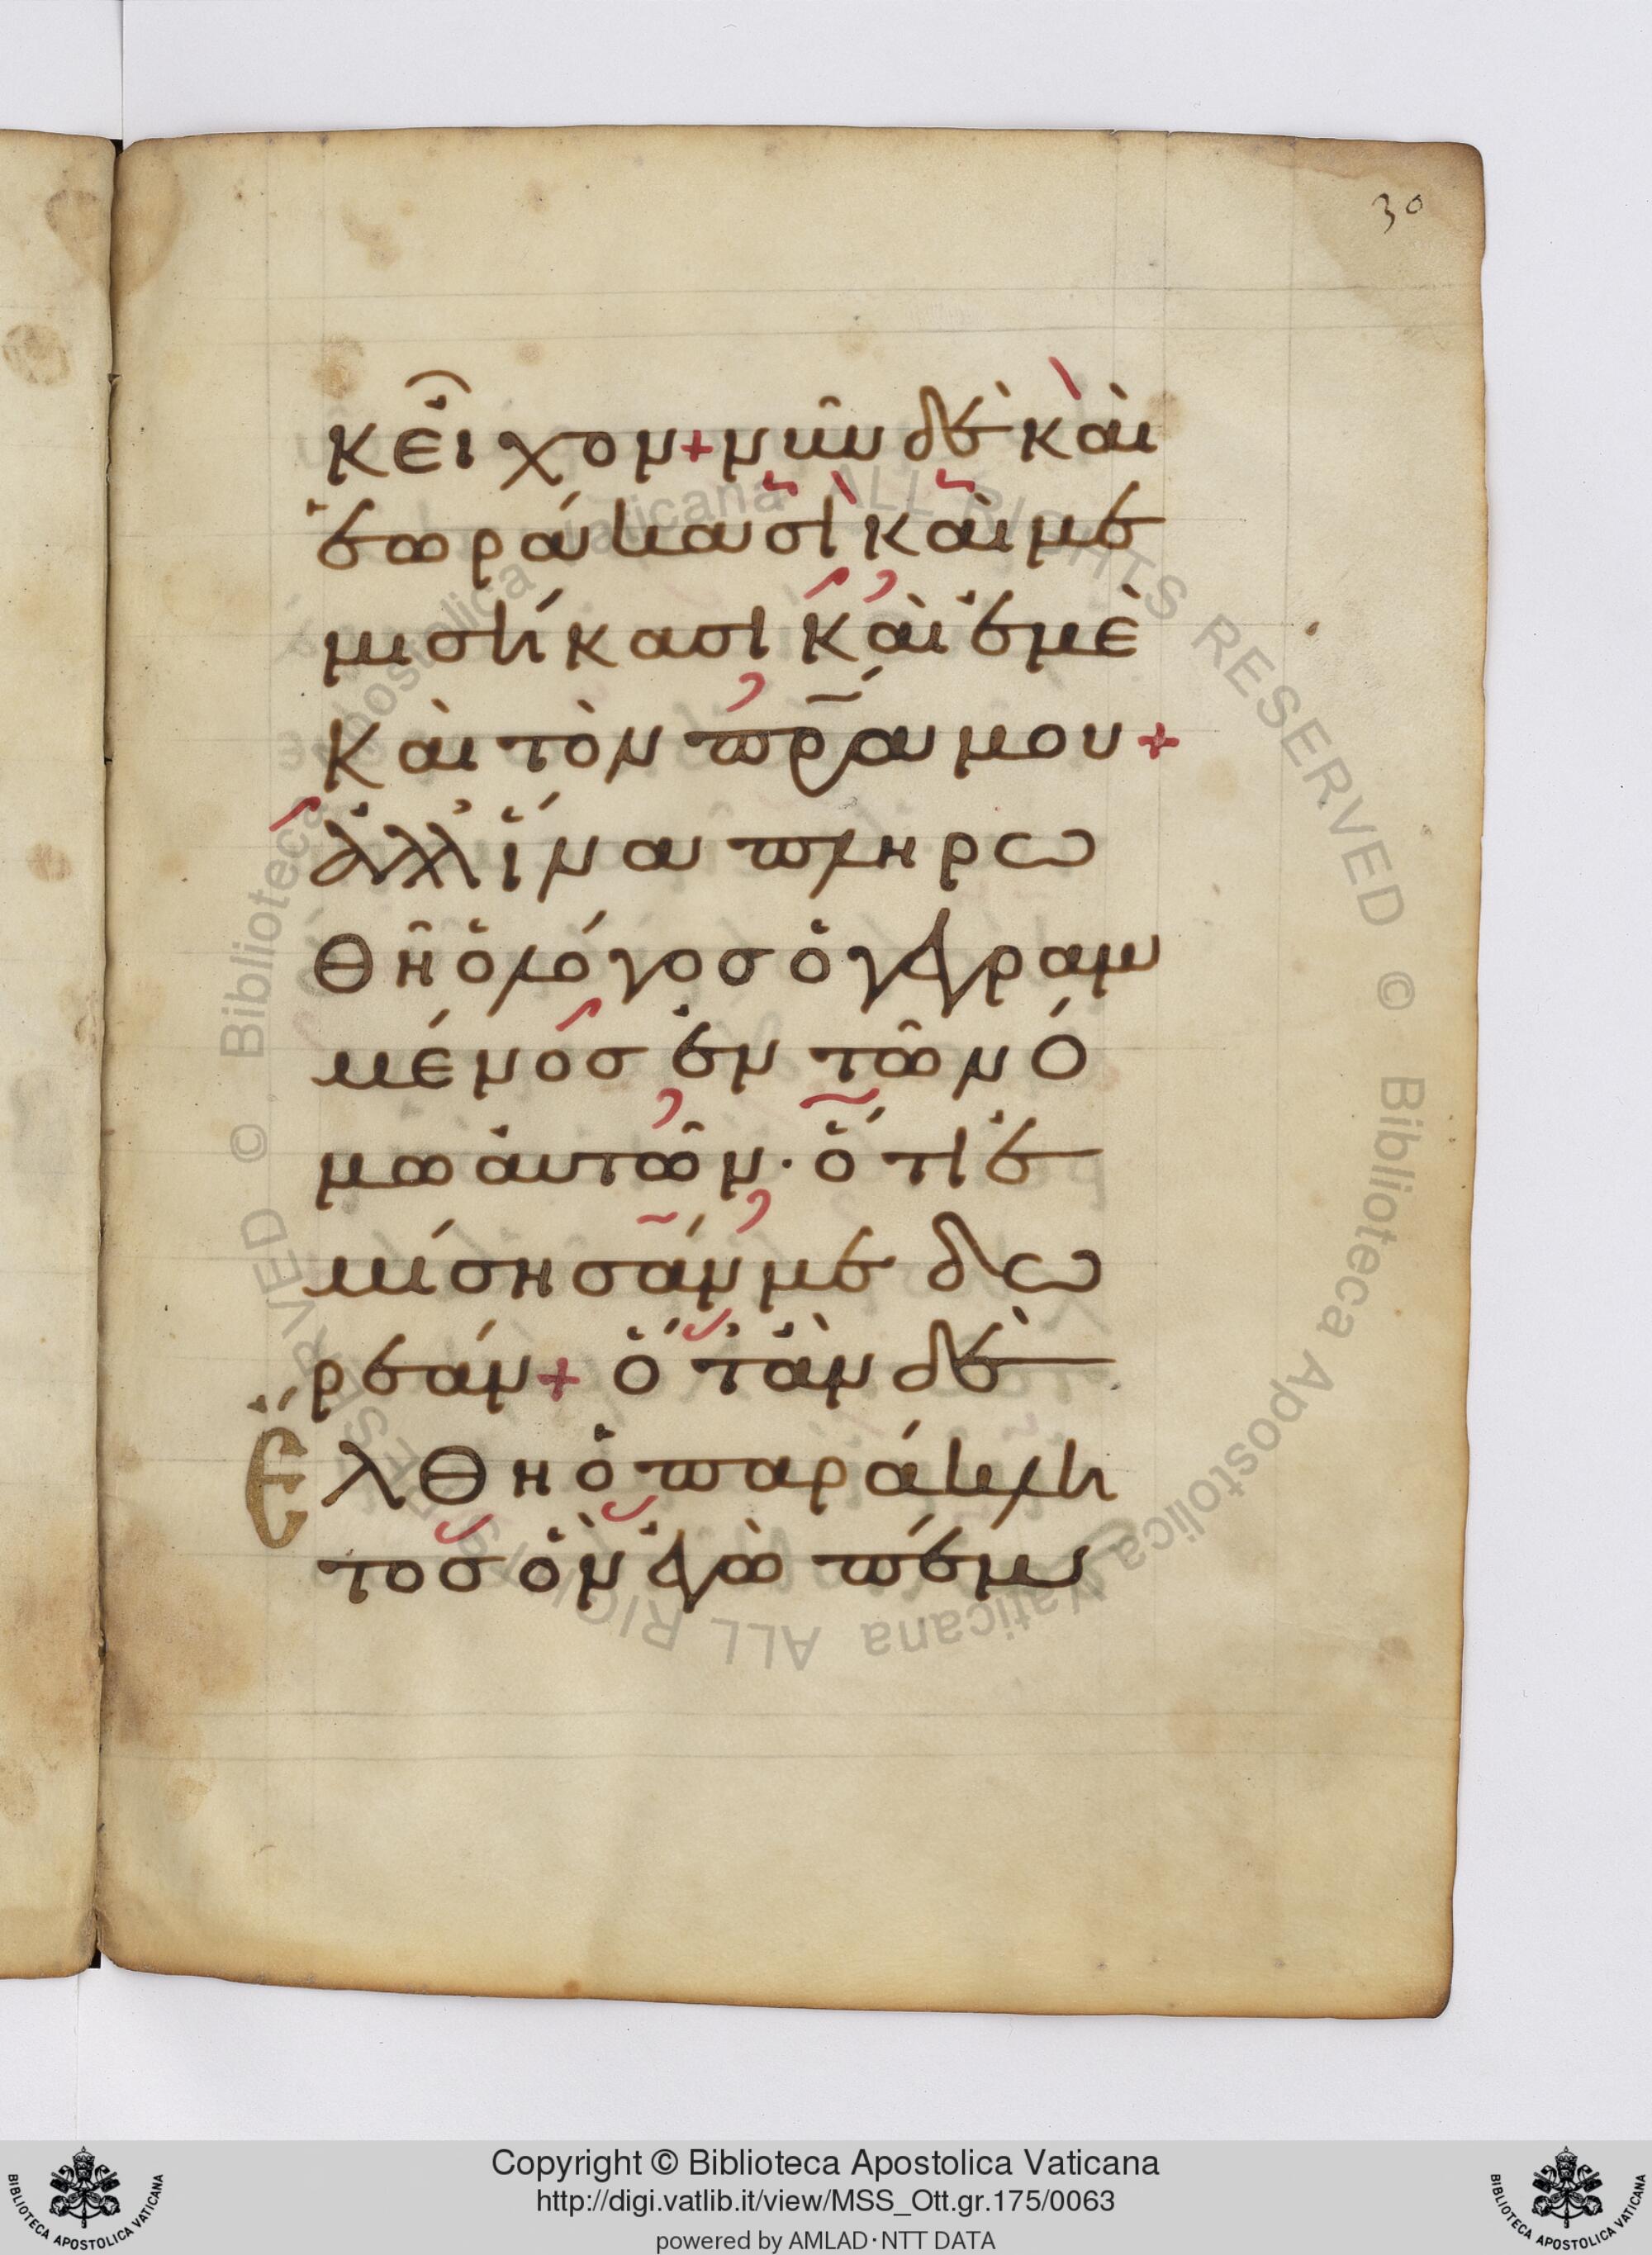 30
κ εἶχον + νῦν δὲ καὶ
ἑωράκασι καὶ με
μισήκασι καὶ ἐμὲ
καὶ τὸν πρ̄α μου +
ἀλλ' ἵνα πληρω
θῇ ὁ λόγος ὁ γεγραμ
μένος ἐν τῶ νό
μω αὐτῶν· ὅτι ἐ
μίσησάν με δω
ρεάν + ὅταν δὲ
ἔλθη ὁ παράκλη
τος ὃν ἐγὼ πέμ
© Biblioteca Apostolica Vaticana ALL RIGHTS RESERVED © Biblioteca Apostolica Vaticana ALL RIGHTS RESERVED
Copyright © Biblioteca Apostolica Vaticana
http://digi.vatlib.it/view/MSS_Ott.gr.175/0063
powered by AMLAD·NTT DATA
BIBLIOTECA APOSTOLICA VATICANA
BIBLIOTECA APOSTOLICA VATICANA